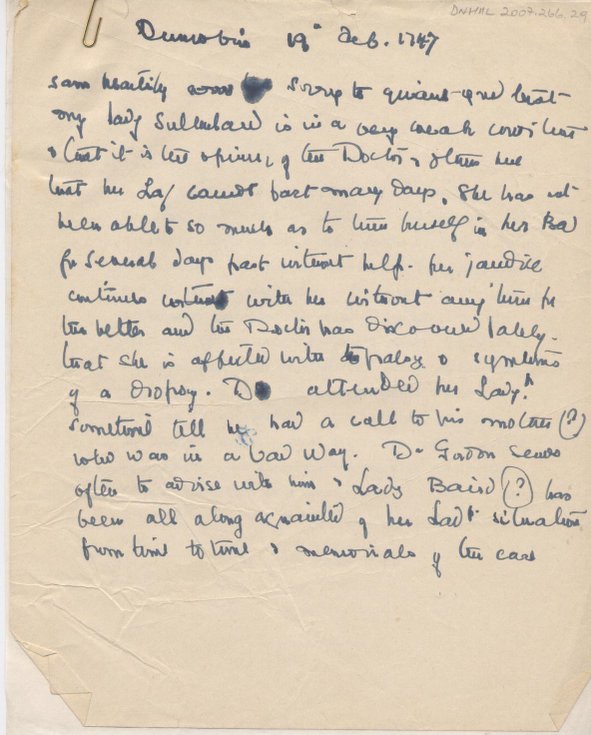 DNHHL 2007.266.29
Dunrobin 19th Feb. 1747
I am heartily sorry to quaint you that
my Lady Sutherland is in a very weak condition
& that it is the opinion of the Doctor & others here
that her La/ cannot last many days. She has not
been able to so much as to turn herself in her Bed
for several days past without help. her jandice
continues with her without any turn for
the better and the Doctor has discovered lately
that she is affected with palsy & symptoms
of a dropsy. D attended her Lady.p
sometime till he had a call to his mother (?)
who was in a bad way. Dr Gordon sends
often to advise with him & Lady Baird (?) has
been all along acquainted of her Ladp situation
from time to time & memorials of the case